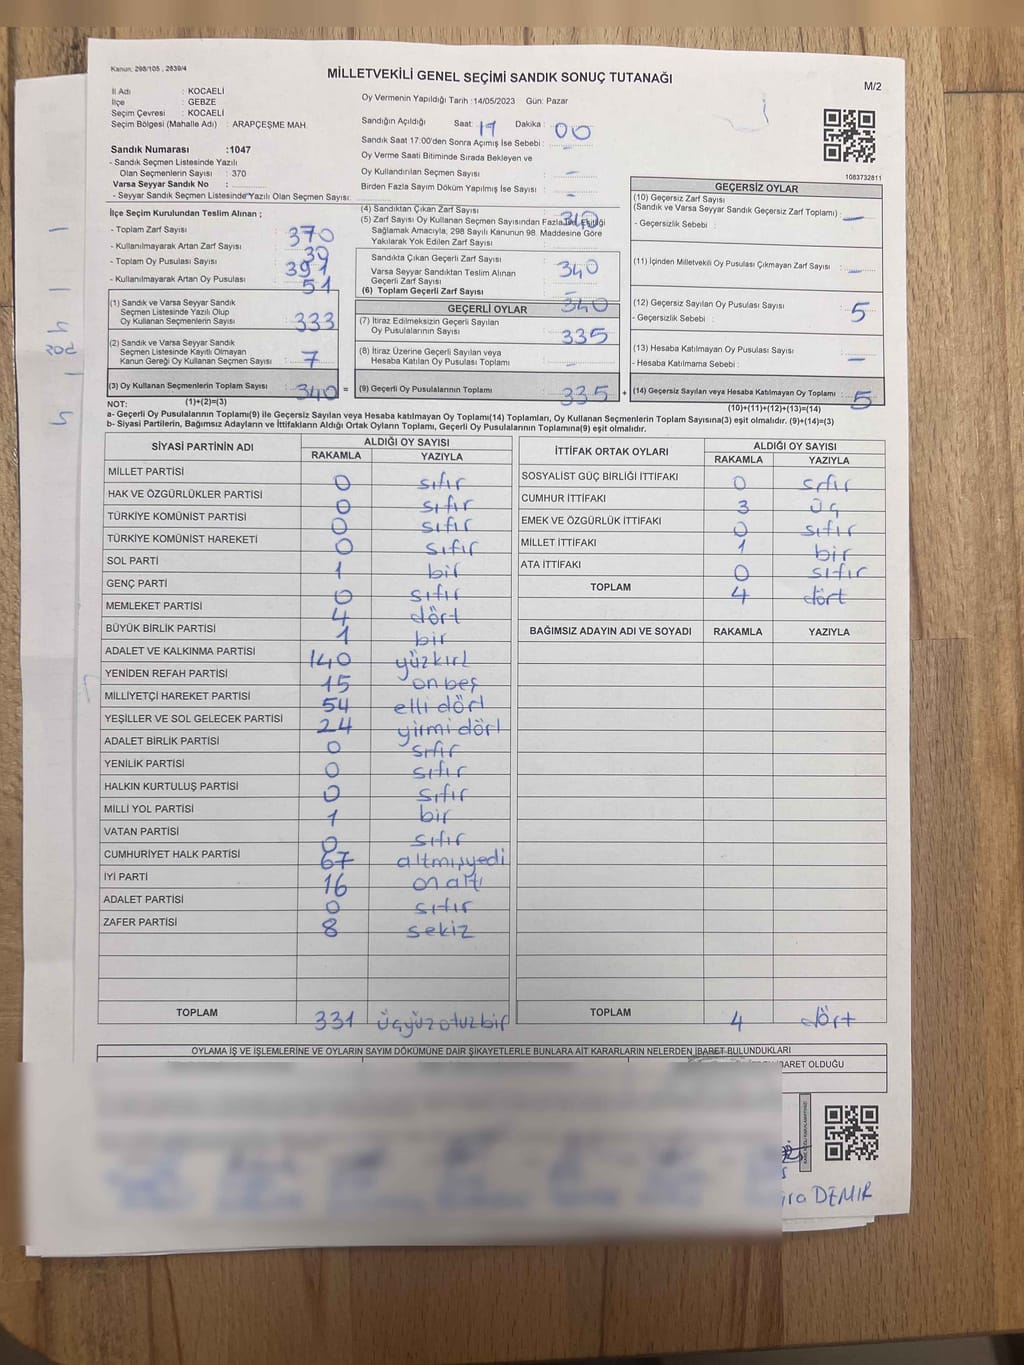 Kanun: 298/105 , 2839/4
MİLLETVEKİLİ GENEL SEÇİMİ SANDIK SONUÇ TUTANAĞI
M/2
İl Adı : KOCAELİ
İlçe : GEBZE
Seçim Çevresi : KOCAELİ
Seçim Bölgesi (Mahalle Adı) : ARAPÇEŞME MAH.
Sandık Numarası :1047
- Sandık Seçmen Listesinde Yazılı
Olan Seçmenlerin Sayısı : 370
Varsa Seyyar Sandık No :
- Seyyar Sandık Seçmen Listesinde Yazılı Olan Seçmen Sayısı:
Oy Vermenin Yapıldığı Tarih :14/05/2023 Gün: Pazar
Sandığın Açıldığı Saat: 17 Dakika : 00
Sandık Saat 17:00'den Sonra Açımış İse Sebebi : –
Oy Verme Saati Bitiminde Sırada Bekleyen ve
Oy Kullandırılan Seçmen Sayısı : –
Birden Fazla Sayım Döküm Yapılmış İse Sayısı : –
1083732811
İlçe Seçim Kurulundan Teslim Alınan ;
- Toplam Zarf Sayısı : 370
- Kullanılmayarak Artan Zarf Sayısı : 30
- Toplam Oy Pusulası Sayısı : 391
- Kullanılmayarak Artan Oy Pusulası : 51
(1) Sandık ve Varsa Seyyar Sandık
Seçmen Listesinde Yazılı Olup
Oy Kullanan Seçmenlerin Sayısı : 333
(2) Sandık ve Varsa Seyyar Sandık
Seçmen Listesinde Kayıtlı Olmayan
Kanun Gereği Oy Kullanan Seçmen Sayısı : 7
(3) Oy Kullanan Seçmenlerin Toplam Sayısı : 340 =
(4) Sandıktan Çıkan Zarf Sayısı : 340
(5) Zarf Sayısı Oy Kullanan Seçmen Sayısından Fazla İse, Eşitliği
Sağlamak Amacıyla, 298 Sayılı Kanunun 98. Maddesine Göre
Yakılarak Yok Edilen Zarf Sayısı : –
Sandıkta Çıkan Geçerli Zarf Sayısı : 340
Varsa Seyyar Sandıktan Teslim Alınan
Geçerli Zarf Sayısı : –
(6) Toplam Geçerli Zarf Sayısı : 340
GEÇERLİ OYLAR
(7) İtiraz Edilmeksizin Geçerli Sayılan
Oy Pusulalarının Sayısı : 335
(8) İtiraz Üzerine Geçerli Sayılan veya
Hesaba Katılan Oy Pusulası Toplamı : –
(9) Geçerli Oy Pusulalarının Toplamı : 335 +
GEÇERSİZ OYLAR
(10) Geçersiz Zarf Sayısı
(Sandık ve Varsa Seyyar Sandık Geçersiz Zarf Toplamı) : –
- Geçersizlik Sebebi :
(11) İçinden Milletvekili Oy Pusulası Çıkmayan Zarf Sayısı : –
(12) Geçersiz Sayılan Oy Pusulası Sayısı : 5
- Geçersizlik Sebebi :
(13) Hesaba Katılmayan Oy Pusulası Sayısı : –
- Hesaba Katılmama Sebebi :
(14) Geçersiz Sayılan veya Hesaba Katılmayan Oy Toplamı : 5
NOT: (1)+(2)=(3)
(10)+(11)+(12)+(13)=(14)
a- Geçerli Oy Pusulalarının Toplamı(9) ile Geçersiz Sayılan veya Hesaba katılmayan Oy Toplamı(14) Toplamları, Oy Kullanan Seçmenlerin Toplam Sayısına(3) eşit olmalıdır. (9)+(14)=(3)
b- Siyasi Partilerin, Bağımsız Adayların ve İttifakların Aldığı Ortak Oyların Toplamı, Geçerli Oy Pusulalarının Toplamına(9) eşit olmalıdır.
SİYASİ PARTİNİN ADI ALDIĞI OY SAYISI
RAKAMLA YAZIYLA
MİLLET PARTİSİ 0 sıfır
HAK VE ÖZGÜRLÜKLER PARTİSİ 0 sıfır
TÜRKİYE KOMÜNİST PARTİSİ 0 sıfır
TÜRKİYE KOMÜNİST HAREKETİ 0 sıfır
SOL PARTİ 1 bir
GENÇ PARTİ 0 sıfır
MEMLEKET PARTİSİ 4 dört
BÜYÜK BİRLİK PARTİSİ 1 bir
ADALET VE KALKINMA PARTİSİ 140 yüzkırk
YENİDEN REFAH PARTİSİ 15 onbeş
MİLLİYETÇİ HAREKET PARTİSİ 54 elli dört
YEŞİLLER VE SOL GELECEK PARTİSİ 24 yirmi dört
ADALET BİRLİK PARTİSİ 0 sıfır
YENİLİK PARTİSİ 0 sıfır
HALKIN KURTULUŞ PARTİSİ 0 sıfır
MİLLİ YOL PARTİSİ 1 bir
VATAN PARTİSİ 0 sıfır
CUMHURİYET HALK PARTİSİ 67 altmışyedi
İYİ PARTİ 16 on altı
ADALET PARTİSİ 0 sıfır
ZAFER PARTİSİ 8 sekiz
TOPLAM 331 üçyüzotuzbir
İTTİFAK ORTAK OYLARI ALDIĞI OY SAYISI
RAKAMLA YAZIYLA
SOSYALİST GÜÇ BİRLİĞİ İTTİFAKI 0 sıfır
CUMHUR İTTİFAKI 3 üç
EMEK VE ÖZGÜRLÜK İTTİFAKI 0 sıfır
MİLLET İTTİFAKI 1 bir
ATA İTTİFAKI 0 sıfır
TOPLAM 4 dört
BAĞIMSIZ ADAYIN ADI VE SOYADI RAKAMLA YAZIYLA
TOPLAM 4 dört
OYLAMA İŞ VE İŞLEMLERİNE VE OYLARIN SAYIM DÖKÜMÜNE DAİR ŞİKAYETLERLE BUNLARA AİT KARARLARIN NELERDEN İBARET BULUNDUKLARI
BARET OLDUĞU
DEMİR